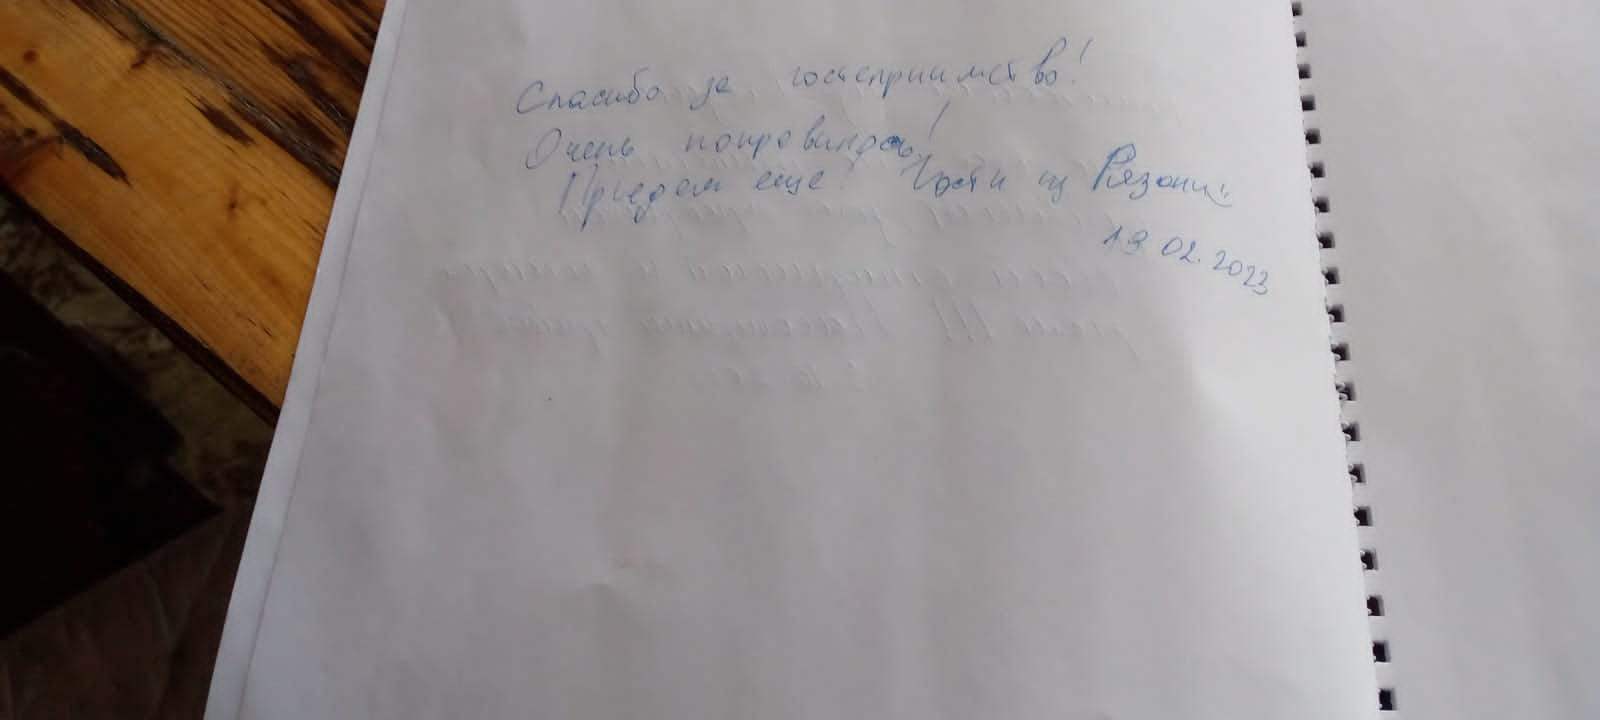 Спасибо за гостеприимство!
Очень понравилось!
Приедем еще! Гости из Рязани
19.02.2023